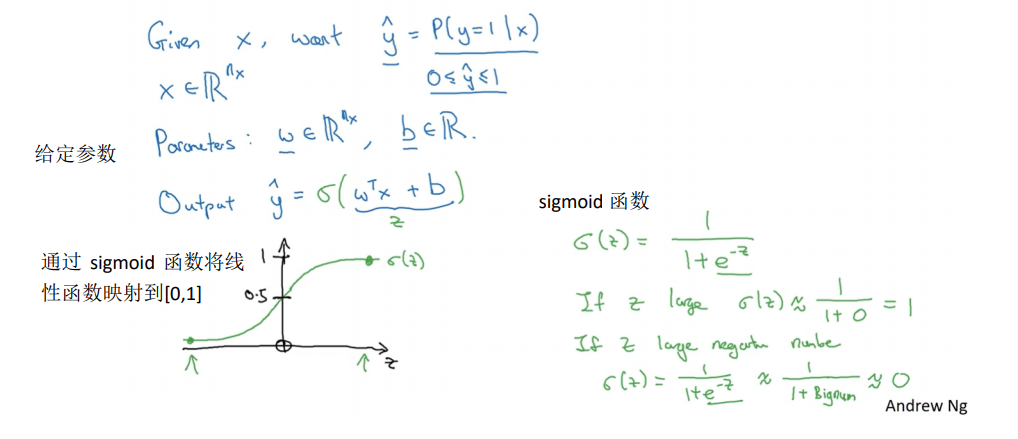 Given x, want ŷ = P(y=1|x)
x ∈ ℝ^{n_x}
0 ≤ ŷ ≤ 1
给定参数
Parameters: w ∈ ℝ^{n_x}, b ∈ ℝ.
Output ŷ = σ(w^T x + b)
z
通过 sigmoid 函数将线
性函数映射到[0,1]
1
0.5
σ(z)
z
sigmoid 函数
σ(z) = 1/(1+e^{-z})
If z large σ(z) ≈ 1/(1+0) = 1
If z large negative number
σ(z) = 1/(1+e^{-z}) ≈ 1/(1+Bignum) ≈ 0
Andrew Ng